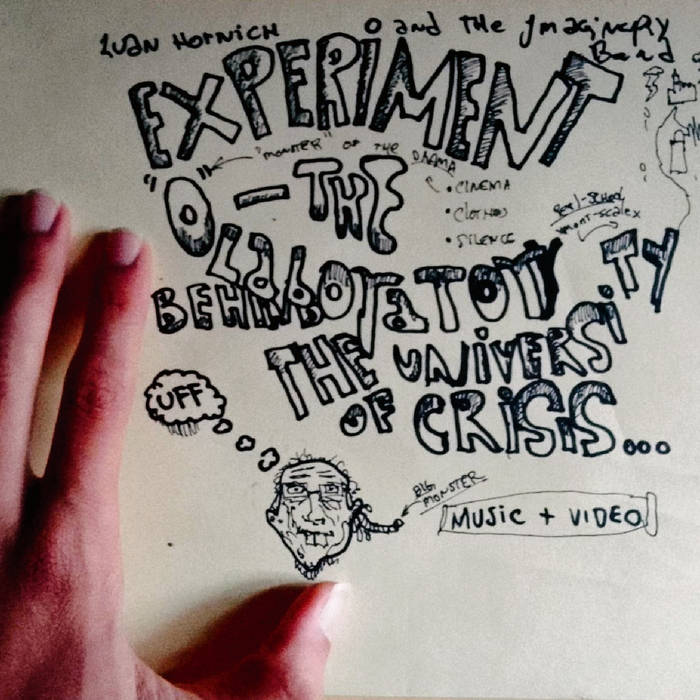 IVAN HORNICH and THE ImaginaRy
Band
EXPERIMENT
"MONSTER" OF THE DRAMA
"O" - THE
• CINEMA
• CLOTHES
• SILENCE
LaboraTORY
BEHIND
THE UNIVERSiTY
OF CRISIS...
UFF
BIG MONSTER
MUSIC + VIDEO